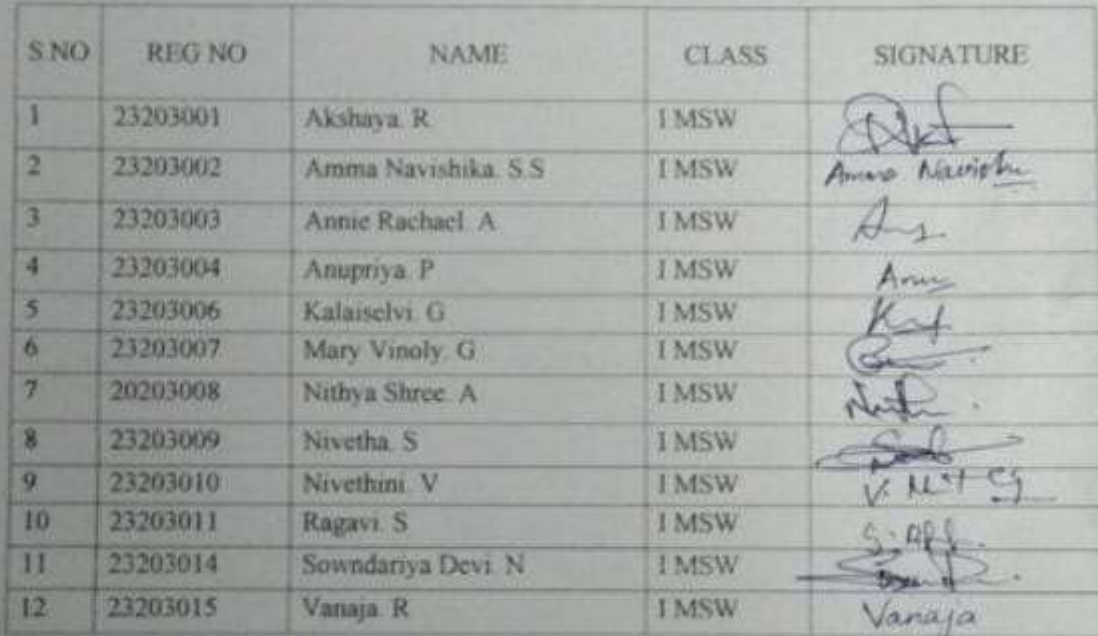 S NO REG NO NAME CLASS SIGNATURE
1 23203001 Akshaya. R I MSW
2 23203002 Amma Navishika. S.S I MSW Amma
3 23203003 Annie Rachael. A I MSW
4 23203004 Anupriya. P I MSW
5 23203006 Kalaiselvi. G I MSW
6 23203007 Mary Vinoly. G I MSW
7 20203008 Nithya Shree. A I MSW
8 23203009 Nivetha. S I MSW
9 23203010 Nivethini. V I MSW
10 23203011 Ragavi. S I MSW
11 23203014 Sowndariya Devi. N I MSW
12 23203015 Vanaja. R I MSW Vanaja